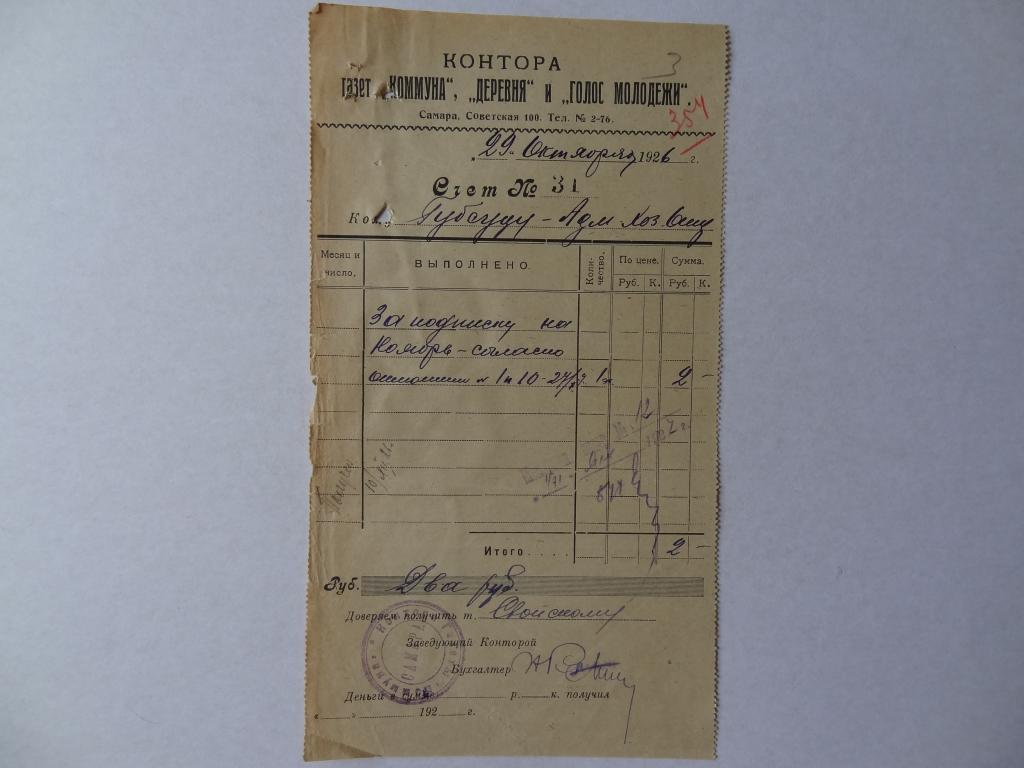 3
КОНТОРА
газет „КОММУНА“, „ДЕРЕВНЯ“ и „ГОЛОС МОЛОДЕЖИ“.
354
Самара, Советская 100. Тел. № 2-76.
„29 Октября 1926 г.
Счет № 31
Кому Губсуду - Адм. Хоз.
Месяц и число. ВЫПОЛНЕНО. Коли-чество. По цене. Сумма.
Руб. К. Руб. К.
За подписку на
Ноябрь - согласно
1 10 - 27/ 1 2 -
№ 12
Итого . . . . 2 -
Руб. Два руб.
Доверяем получить т. Свойскому
Заведующий Конторой
Бухгалтер
Деньги в сумме р. к. получил
„ “ 192 г.